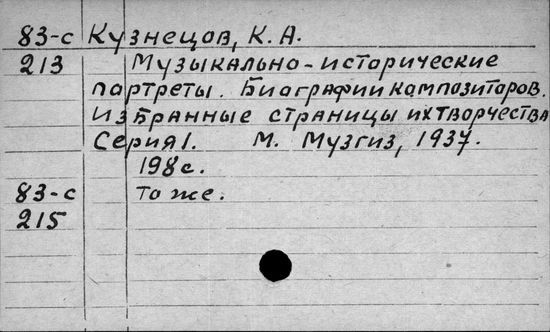 83-с Кузнецов, К. А.
213 Музыкально-исторические
портреты. Биографии композиторов.
Избранные страницы их творчества
Серия 1. М. Музгиз, 1937.
198 с.
83-с То же.
215